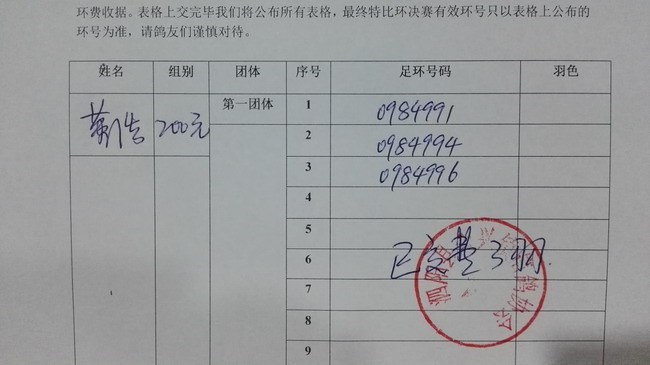 环费收据。表格上交完毕我们将公布所有表格，最终特比环决赛有效环号只以表格上公布的
环号为准，请鸽友们谨慎对待。
姓名 组别 团体 序号 足环号码 羽色
200元 第一团体 1 0984991
2 0984994
3 0984996
4
5
6 已交费3羽
7
8
9
泗阳县
鸽协会